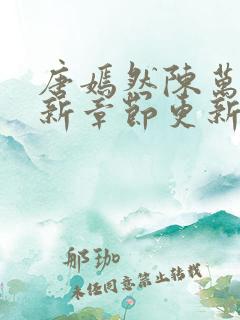 唐嫣然陳萬
新章節更新
郍珈
未经同意禁止转载